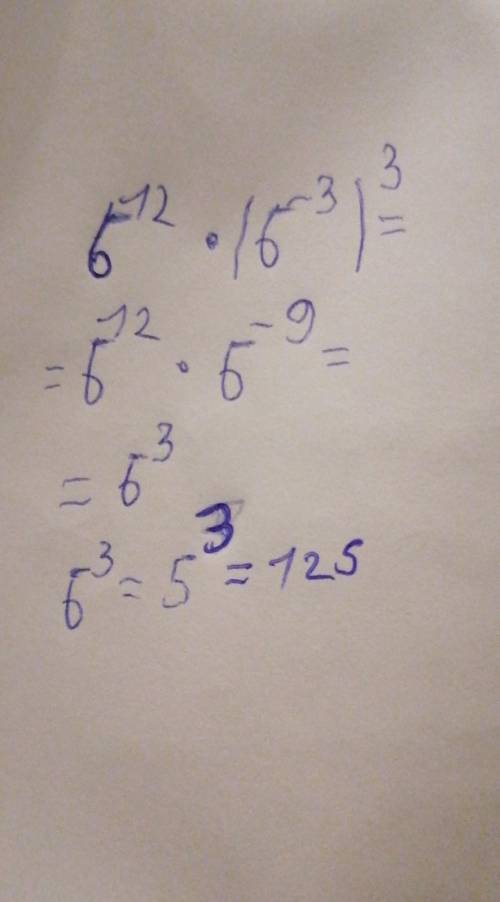 б¹² · (б⁻³)³ =
= б¹² · б⁻⁹ =
= б³
б³ = 5³ = 125